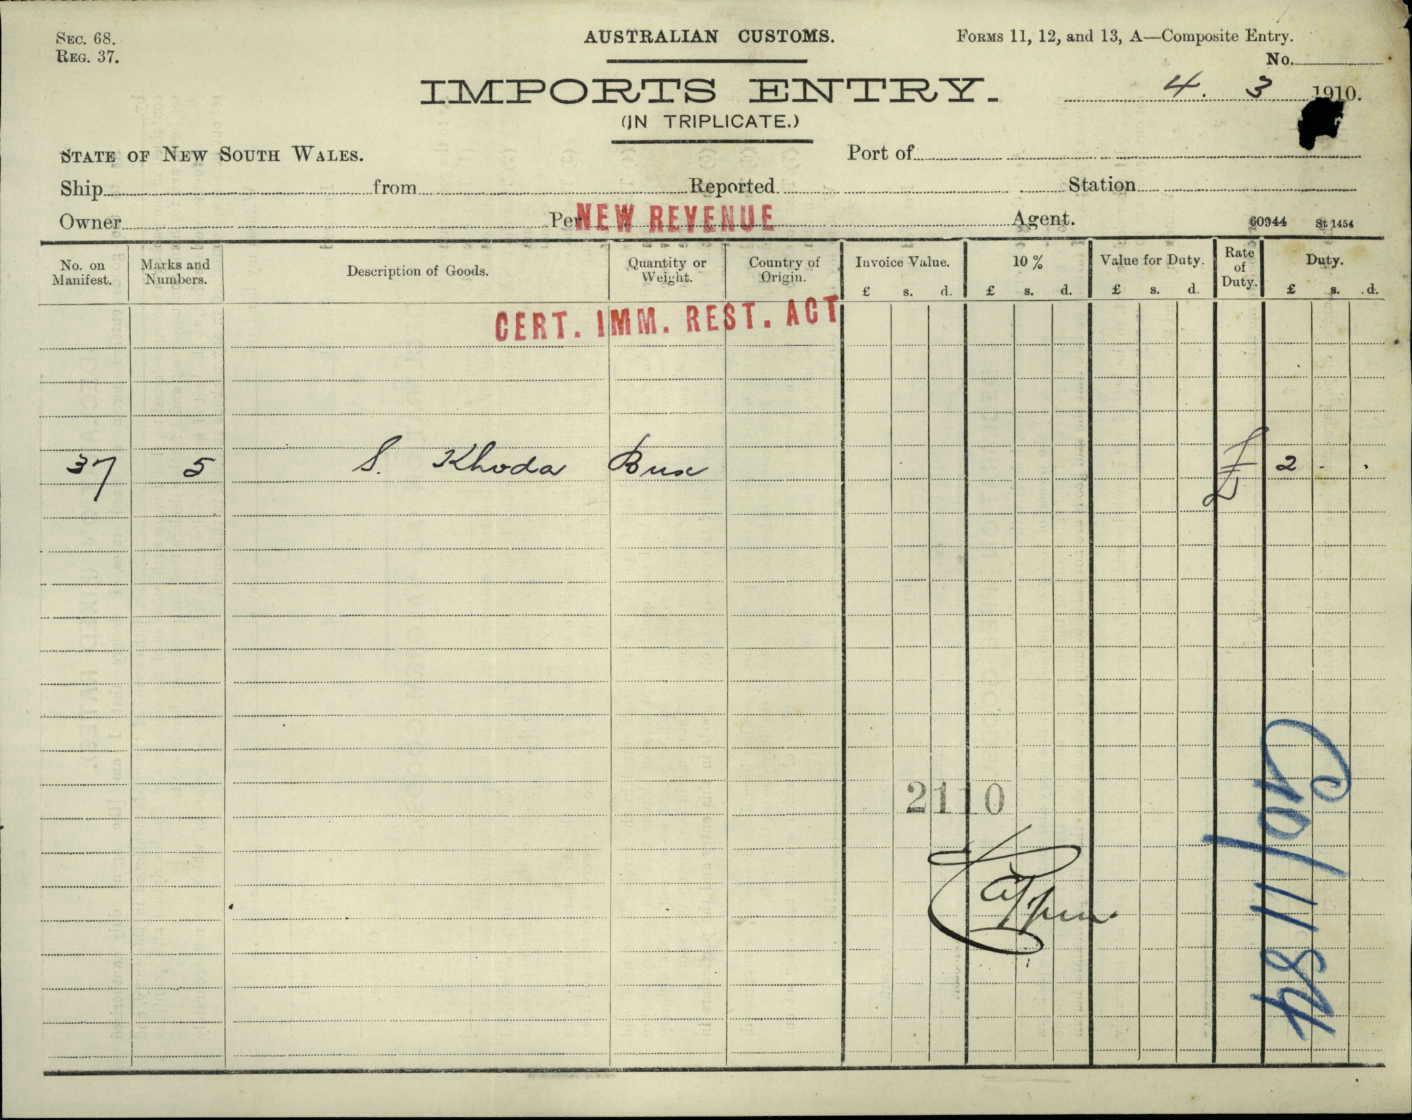 SEC. 68.
REG. 37.
AUSTRALIAN CUSTOMS.
FORMS 11, 12, and 13, A—Composite Entry.
No.
IMPORTS ENTRY.
4. 3 1910.
(IN TRIPLICATE.)
STATE OF NEW SOUTH WALES.
Port of
Ship from Reported Station
Owner Per NEW REVENUE Agent.
60944 St 1454
No. on Manifest. Marks and Numbers. Description of Goods. Quantity or Weight. Country of Origin. Invoice Value. 10 % Value for Duty. Rate of Duty. Duty.
£ s. d. £ s. d. £ s. d. £ s. d.
CERT. IMM. REST. ACT
37 5 S. Khoda Bux £ 2 . .
2110
C10/1184